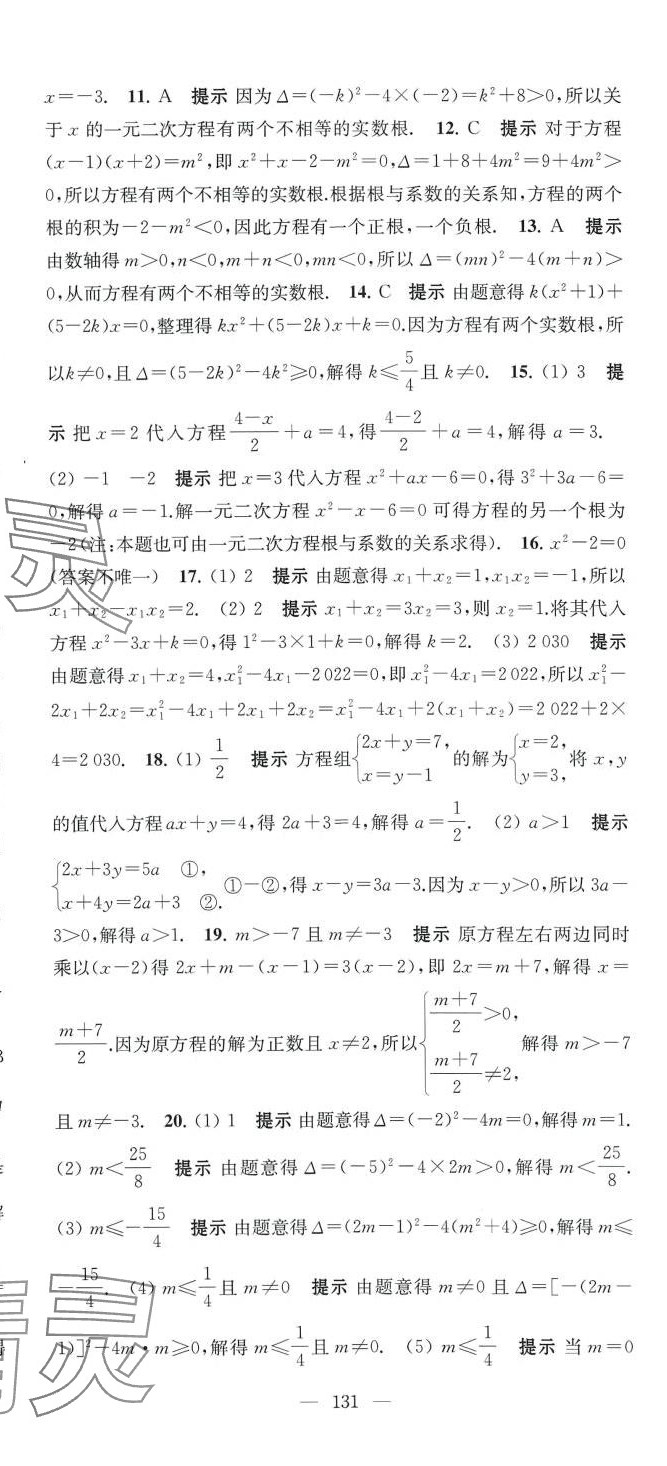 x=-3. 11. A 提示 因为Δ=(-k)²-4×(-2)=k²+8>0,所以关
于 x 的一元二次方程有两个不相等的实数根. 12. C 提示 对于方程
(x-1)(x+2)=m²,即 x²+x-2-m²=0,Δ=1+8+4m²=9+4m²>
0,所以方程有两个不相等的实数根.根据根与系数的关系知,方程的两个
根的积为-2-m²<0,因此方程有一个正根,一个负根. 13. A 提示
由数轴得 m>0,n<0,m+n<0,mn<0,所以 Δ=(mn)²-4(m+n)>
0,从而方程有两个不相等的实数根. 14. C 提示 由题意得 k(x²+1)+
(5-2k)x=0,整理得 kx²+(5-2k)x+k=0.因为方程有两个实数根,所
以k≠0,且 Δ=(5-2k)²-4k²⩾0,解得 k⩽5/4且 k≠0. 15. (1) 3 提
示 把 x=2 代入方程(4-x)/2+a=4,得(4-2)/2+a=4,解得 a=3.
(2) -1 -2 提示 把 x=3 代入方程 x²+ax-6=0,得 3²+3a-6=
0,解得 a=-1.解一元二次方程 x²-x-6=0 可得方程的另一个根为
-2(注:本题也可由一元二次方程根与系数的关系求得). 16. x²-2=0
(答案不唯一) 17. (1) 2 提示 由题意得 x₁+x₂=1,x₁x₂=-1,所以
x₁+x₂-x₁x₂=2. (2) 2 提示 x₁+x₂=3x₂=3,则 x₂=1.将其代入
方程 x²-3x+k=0,得 1²-3×1+k=0,解得 k=2. (3) 2 030 提示
由题意得 x₁+x₂=4,x₁²-4x₁-2 022=0,即 x₁²-4x₁=2 022,所以 x₁²-
2x₁+2x₂=x₁²-4x₁+2x₁+2x₂=x₁²-4x₁+2(x₁+x₂)=2 022+2×
4=2 030. 18. (1) 1/2 提示 方程组{2x+y=7, x=y-1 的解为{x=2, y=3, 将 x,y
的值代入方程 ax+y=4,得 2a+3=4,解得 a=1/2. (2) a>1 提示
{2x+3y=5a ①, x+4y=2a+3 ②. ①-②,得 x-y=3a-3.因为 x-y>0,所以 3a-
3>0,解得 a>1. 19. m>-7 且 m≠-3 提示 原方程左右两边同时
乘以(x-2)得 2x+m-(x-1)=3(x-2),即 2x=m+7,解得 x=
(m+7)/2.因为原方程的解为正数且 x≠2,所以{(m+7)/2>0, (m+7)/2≠2, 解得 m>-7
且 m≠-3. 20. (1) 1 提示 由题意得 Δ=(-2)²-4m=0,解得 m=1.
(2) m<25/8 提示 由题意得 Δ=(-5)²-4×2m>0,解得 m<25/8.
(3) m⩽-15/4 提示 由题意得 Δ=(2m-1)²-4(m²+4)⩾0,解得 m⩽
-15/4. (4) m⩽1/4且 m≠0 提示 由题意得 m≠0 且 Δ=[-(2m-
1)]²-4m·m⩾0,解得 m⩽1/4且 m≠0. (5) m⩽1/4 提示 当 m=0
— 131 —